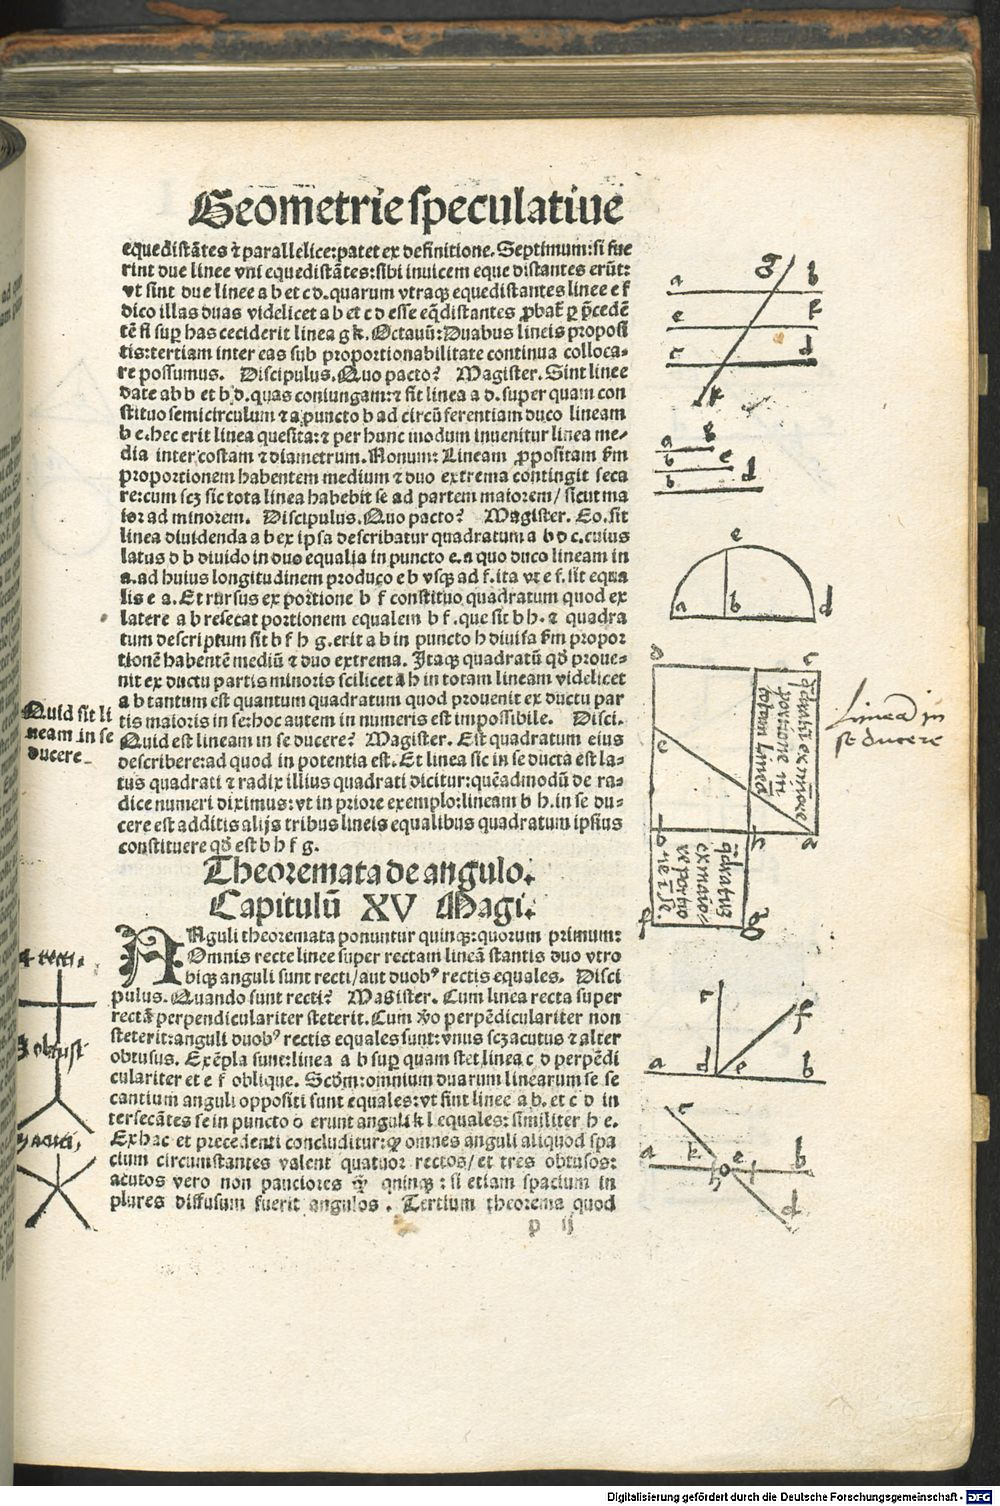 Geometrie speculatiue
equedistãtes ⁊ parallelice: patet ex definitione. Septimum: si fue
rint due linee vni equedistãtes: sibi inuicem eque distantes erũt:
vt sint due linee a b et c d. quarum vtraqꝫ equedistantes linee e f
dico illas duas videlicet a b et c d esse eq̃distantes ꝓbat᷑ ꝑ p̃cedẽ
tẽ si suꝑ has ceciderit linea g k. Octauũ: Duabus lineis proposi
tis: tertiam inter eas sub proportionabilitate continua colloca-
re possumus. Discipulus. Quo pacto? Magister. Sint linee
date ab b et b d. quas coniungam: ⁊ fit linea a d. super quam con
stituo semicirculum ⁊ a puncto b ad circũferentiam duco lineam
b e. hec erit linea quesita: ⁊ per hunc modum inuenitur linea me-
dia inter costam ⁊ diametrum. Nonum: Lineam ꝓpositam fm̃
proportionem habentem medium ⁊ duo extrema contingit seca
re: cum scꝫ sic tota linea habebit se ad partem maiorem/ sicut ma
ior ad minorem. Discipulus. Quo pacto? Magister. Eo. sit
linea diuidenda a b ex ipsa describatur quadratum a b d c. cuius
latus d b diuido in duo equalia in puncto e. a quo duco lineam in
a. ad huius longitudinem produco e b vsqꝫ ad f. ita vt e f. sit equa
lis e a. Et rursus ex portione b f constituo quadratum quod ex
latere a b resecat portionem equalem b f. que sit b h. ⁊ quadra
tum descriptum sit b f h g. erit a b in puncto h diuisa fm̃ propor
tionẽ habentẽ mediũ ⁊ duo extrema. Itaqꝫ quadratũ qđ proue-
nit ex ductu partis minoris scilicet a h in totam lineam videlicet
a b tantum est quantum quadratum quod prouenit ex ductu par
tis maioris in se: hoc autem in numeris est impossibile. Disci.
Quid est lineam in se ducere? Magister. Est quadratum eius
describere: ad quod in potentia est. Et linea sic in se ducta est la-
tus quadrati ⁊ radix illius quadrati dicitur: quẽadmodũ de ra-
dice numeri diximus: vt in priore exemplo: lineam b h. in se du-
cere est additis alijs tribus lineis equalibus quadratum ipsius
constituere qđ est b h f g.
Quid sit li
neam in se
ducere
Theoremata de angulo.
Capitulũ XV Magi.
ANguli theoremata ponuntur quinqꝫ: quorum primum:
Omnis recte linee super rectam lineã stantis duo vtro
biqꝫ anguli sunt recti/ aut duobꝰ rectis equales. Disci
pulus. Quando sunt recti? Magister. Cum linea recta super
rectã perpendiculariter steterit. Cum ꝟo perpẽdiculariter non
steterit: anguli duobꝰ rectis equales sunt: vnus scꝫ acutus ⁊ alter
obtusus. Exẽpla sunt: linea a b suꝑ quam stet linea c d perpẽdi
culariter et e f oblique. Scđm: omnium duarum linearum se se
cantium anguli oppositi sunt equales: vt sint linee a b. et c d in
tersecãtes se in puncto o erunt anguli k l equales: similiter h e.
Ex hac et precedenti concluditur: qꝙ omnes anguli aliquod spa
cium circumstantes valent quatuor rectos/ et tres obtusos:
acutos vero non pauciores ꝙ̃ quinqꝫ: si etiam spacium in
plures diffusum fuerit angulos. Tertium theorema quod
p ij
4 recti.
3 obtusi
5 acuti.
g
a b
e f
c d
k
a b
b e
b d
e
a b d
d c
q̃dratũ ex mĩore
portione in
totam lineã
e
b h a
q̃dratũ
ex maio-
re portio
ne ĩ se.
f g
Linea in
se ducere
c f
a d e b
c
a k e b
h o l
d
Digitalisierung gefördert durch die Deutsche Forschungsgemeinschaft - DFG